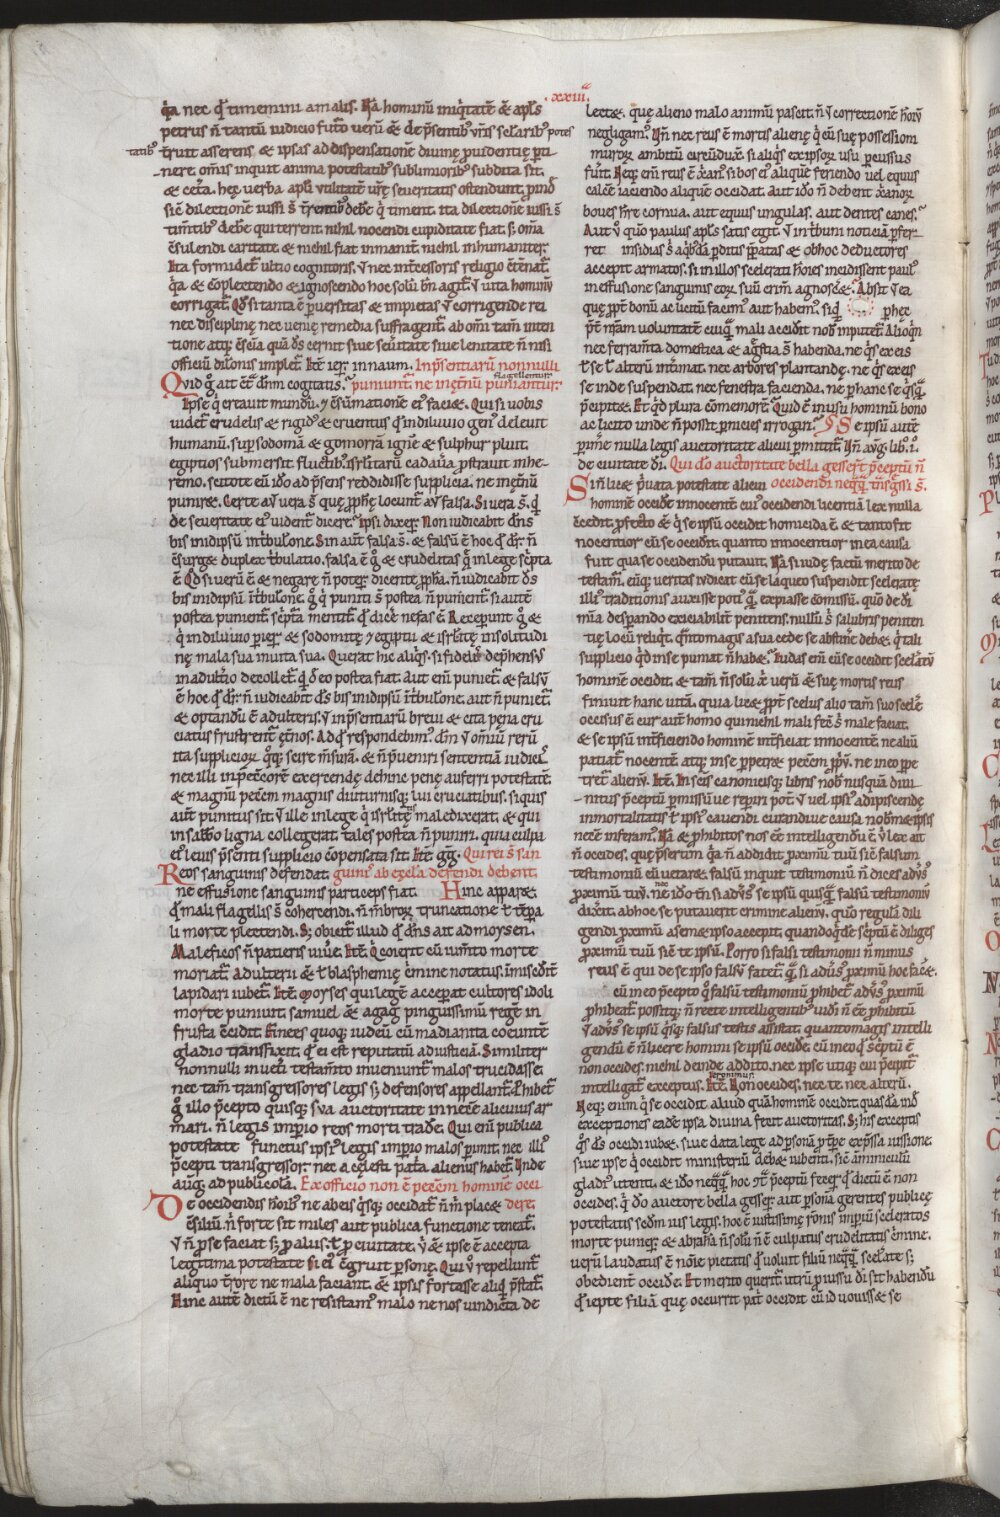 .xxiii.
q̄a nec q̄ timemini amaĺis. Nā hominū iniq̇tatē & apl's
petrus ñ tantū iudicio futo uerū & de p̄sentib' uris scelarib' potes
tatib' truit asserens & ipsas ad dispensationē diuinę ꝓuidentię ꝑti
nere. om̄is inquit anima potestatib' sublimiorib' subdita sit.
& cet̄a. hęc uerba apl'i utilitatē urę seueritatis ostendunt. ꝓinđ
sic̄ dilectionē iussi s̄ t̄rentib' debe q̇ timent. ita dilectionē iussi s̄
tim̄tib' debe qui terrent. nihil nocendi cupiditate fiat. s; om̄a
c̄sulendi caritate & nichil fiat inmanit̄. nichil inhumaniter.
Ita formidet̄ ultio cognitoris. ỷ nec int̄cessoris religio c̄tēnat̄.
q̄a & cōplectendo & ignoscendo hoc solū bñ agit̄. ỷ uita hominū
corrigat̄. Qd' si tanta ē ꝑuersitas & impietas ỷ corrigende rei
nec disciplinę nec uenię remedia suffragent̄. ab om̄i tam̄ inten
tione atq; c̄scia quā dš cernit siue seu̇itate siue lenitate ñ nisi
officiū dil'onis implet̄. Itē ier̄. in naum. In p̄sentiarū nonnulli
Quid q̄ ait c̄t̄ dn̄m cogitatis. flagellentur puniunt̄. ne in et̄nū puniantur.
Ipse q̇ creauit mundū. ⁊ c̄sūmationē ei' faci&. Qui si uobis
uidet̄ crudelis & rigid' & cruentus q̄ in diluuio gen' deleuit
humanū. sup sodomā & gomorrā ignē & sulphur pluit.
egiptios submersit fluctib'. isrl'itarū cadau̇a ꝓstrauit in he
remo. scitote eū iđo ad p̄sens reddidisse supplicia. ne in et̄nū
punir&. Certe aut̄ uera s̄ quę ꝓph&ę locunt̄ aut̄ falsa. Si uera s̄. q̄
de seueritate ei' uident̄ dicere. ipsi dixer̄. Non iudicabit dn̄s
bis in idipsū in t̄bul'one. Sin aut̄ falsa s̄. & falsū ē hoc q̄ dr̄. ñ
c̄surg& duplex t̄bulatio. falsa ē g̊ & crudelitas q̄ in lege sc̄pta
ē. Qd' si uerū ē & negare ñ poter̄. dicente ꝓph̄a. ñ iudicabit dš
bis in idipsū in t̄bul'one. g̊ q̇ puniti s̄ postea ñ punient̄. si autē
postea punient̄. sc̄pta mentit̄. q̄ dic̄e nefas ē. Receperunt g̊ &
q̇ in diluuio perier̄ & sodomitę ⁊ egiptii & isrl'itę in solitudi
nę mala sua in uita sua. Querat hic aliq̇s. si fidelis dep̄hensus
in adult'io decollet̄. q̇ đ eo postea fiat. Aut enī puniet̄. & falsū
ē hoc q̄ dr̄. ñ iudicabit dš bis in idipsū in t̄bul'one. aut ñ puniet̄
& optandū ē adulteris. ỷ in p̄sentiarū breui & cita pęna cru
ciatus frustrent̄ et̄nos. Ad q̄ respondebim'. dm̄ ỷ om̄iū rerū
ita suppliciorꝛ q̊q; scire m̄surā. & ñ p̄ueniri sententiā iudicis
nec illi in pet̄core exercendę dehinc penę auferri potestatē.
& magnū pet̄cem magnis diuturnisq; lui cruciatibus. si quis
aut̄ punitus sit. ỷ ille in lege q̇ isrl'itę maledixerat. & qui
in sabb'o ligna collegerat. tales postea ñ puniri. quia culpa
ei' leuis p̄senti supplicio cōpensata sit. Itē. gg̊. Qui rei s̄ san
Reos sanguinis defendat. guinis ab eccl'a defendi debent.
ne effusione sanguinis particeps fiat. Hinc appar&
q̄ mali flagellis s̄ cohercendi. ñ m̄brorꝛ truncatione t̄ t̄ꝑa
li morte plectendi. S; obicit̄ illud q̄ dn̄s ait ad moysen.
Maleficos ñ patieris uiu̇e. Itē. Q̇ coierit cū iumto morte
moriat̄. Adulterii & blasphemię c̄mine notatus. ī misc̄dit̄
lapidari iubet̄. Itē. Moyses qui legē acceperat cultores idoli
morte puniuit. samuel & agag pinguissimū regē in
frusta c̄cidit. Finees quoq; iudeū cū madianita coeuntē
gladio transfixit. q̄ ei est reputatū ad iustitiā. Similiter
nonnulli in uet̄i testam̄to inueniunt̄ malos trucidasse.
nec tam̄ transgressores legis s; defensores appellant̄. ꝓhibet̄
g̊ illo p̄cepto quisq; sua auctoritate in necē alicuius ar
mari. ñ legis imꝑio reos morti trade. Qui enī publica
potestate functus ipsi' legis imꝑio malos punit. nec illi'
p̄cepti transgressor. nec a cęlesti pat̄a alienus habet̄. Unde
aug̅. ad publicolā. Ex officio non ē pet̄cem hominē occi
De occidendis ho'ib' ne ab eis q̇sq; occidat̄ ñ m̄ plac& dere.
c̄siliū. ñ forte sit miles aut publica functione teneat̄.
ỷ ñ ꝓ se faciat s; ꝓ aliis. t̄ ꝓ ciuitate. ỷ & ipse ē accepta
legitima potestate si ei' c̄gruit ꝑsonę. Qui ů repellunt̄
aliquo t̄rore ne mala faciant. & ipsis fortasse aliq̄ p̄stat̄.
Hinc autē dictū ē ne resistam' malo ne nos uindicta de
lect&. quę alieno malo animū pascit. ñ ỷ correctionē ho'ū
negligam'. Un̄ nec reus ē mortis alienę q̇ cū suę possessioni
murorꝛ ambitū circūduxe. si aliq̇s ex ipsorꝛ usu ꝑcussus
fůit. Neq; enī reus ē xp̄an' si bos ei' aliquē feriendo uel equus
calcē iaciendo aliquē occidat. aut iđo ñ debent xp̄anorꝛ
boues h'ere cornua. aut equus ungulas. aut dentes canes.
Aut ů quo paulus apl's satis egit. ỷ in t̄buni noticiā ꝑfer
ret insidias s̄ aq̇bđa ꝑditis p̄patas & ob hoc deductores
accepit armatos. si in illos scelerati ho'ies incidissent paul'
in effusione sanguinis eorꝛ suū crim̄ agnosc&. Absit ỷ ea
quę ꝓpt bonū ac licitū facim' aut habem'. siq̇đ ꝑ hęc
p̄t nr̄am uoluntatē cuiq̄ mali accidit nob' inputet̄. Alioq̇n
nec ferram̄ta domestica & ag̊estia s̄ habenda. ne q̇s ex eis
t̄ se t̄ alterū int̄imat. nec arbores plantandę. ne q̇s ex eis
se inde suspendat. nec fenestra facienda. ne ꝑ hanc se q̇sq̄
p̄cipit&. Et q̇đ plura cōmemorē. Quid ē in usu hominū bono
ac licito unde ñ possit ꝑnicies irrogari. ¶ Se ipsū autē
ꝑim̄e nulla legis auctoritate alicui ꝑmittit̄. Un̄ aug̅. lib̄. i.
de ciuitate dī. Qui dō auctoritate bella gesser̄t p̄ceptū ñ
Si ñ lic& p̄uata potestate alicui occidendi neq̄q̄ t̄nsg̊ssi s̄.
hominē occid̄e innocentē cui' occidendi licentiā lex nulla
c̄cedit. ꝓfecto & q̇ se ipsū occidit homicida ē. & tanto fit
nocentior cū se occidit. quanto innocentior in ea causa
fuit qua se occidendū putauit. Nā si iudę factū merito de
testam̄. eūq; ueritas iudicat cū se laqueo suspendit sceleratę
illi' traditionis auxisse poti' q̄ expiasse cōmissū. quo de dī
mīa desꝑando exiciabilit̄ penitens. nullū s̄ salubris peniten
tię locū reliq̇t. q̄ntomagis a sua cede se abstin̄e deb&. q̇ tali
supplicio qđ in se puniat ñ hab&. Iudas enī cū se occidit scel'atū
hominē occidit. & tam̄ ñ solū xp̄i uerū & suę mortis reus
finiuit hanc uitā. quia lic& ꝓpt̄ scelus alio tam̄ suo scelē
occisus ē. cur aut̄ homo qui nichil mali fec̄ s̄ male faciat.
& se ipsū int̄ficiendo hominē int̄ficiat innocentē. ne aliū
patiat̄ nocentē. atq; in se ꝑpetr& pet̄cem ꝓꝑu. ne in eo ꝑpe
tret̄ alienū. Itē. In scis canonicisq; libris nob' nusquā diui
nitus p̄ceptū ꝑmissūue repiri pot̄. ỷ uel ipsi' adipiscendę
inmortalitatis t̄ ipsi' cauendi curandiue causa nob'm&ipsis
necē inferam'. Nā & ꝓhibitos nos c̄c intelligendū ē. ỷ lex ait
ñ occides. quę p̄sertim q̄a ñ addidit ꝓximū tuū sic̄ falsum
testimoniū cū uetar&. falsū inquit testimoniū ñ dices aduſ'
ꝓximū tuū. nec iđo t̄n si aduſ' se ipsū quisq̄ falsū testimoniū
dixit. ab hoc se putauerit crimine alienū. quō regulā dili
gendi ꝓximū a sem&ipso accepit. quandoq̇đe sc̄ptū ē diliges
ꝓximū tuū sic̄ te ipsū. Porro si falsi testimonii ñ minus
reus ē qui de se ipso falsū fatet̄. q̄ si aduſ' ꝓximū hoc fac&.
cū in eo p̄cepto q̊ falsū testimoniū ꝓhibet̄ aduſ' ꝓximū
ꝓhibeat̄ possitq; ñ recte intelligentib' uidi ñ c̄c ꝓhibitū
ỷ aduſ' se ipsū q̇sq; falsus testis assistat. quantomagis intelli
gendū ē ñ licere homini se ipsū occid̄e. cū in eo q̄ sc̄ptū ē
non occides. nichil deinde addito. nec ipse utiq; cui p̄cipit̄
intelligat̄ exceptus. Itē. ieronimus. Non occides. nec te. nec alterū.
Neq; enim q̇ se occidit. aliud quā hominē occidit. quasđa inđ
exceptiones eade ipsa diuina fecit auctoritas. S; his exceptis
q̊s dš occidi iub&. siue data lege ad ꝑsonā ꝓtꝑe expssa iussione.
siue ipse q̇ occidit ministeriū deb& iubenti. sic̄ ammiculū
gladi' utenti. & iđo neq̄q̄ hoc c̄t̄ p̄ceptū fecer̄ q̄ dictū ē non
occides. q̇ dō auctore bella gesser̄. aut ꝑsonā gerentes publicę
potestatis sc̄dm ius legis. hoc ē iustissimę ronis impiū sceleratos
morte punier̄. & abraha ñ solū ñ ē culpatus crudelitatis c̄mine.
uerū laudatus ē nōīe pietatis q̄ uoluit filiū neq̄q̄ scel'ate s;
obedient̄ occid̄e. Et merito querit̄ utrū ꝓ iussu dī sit habendū
q̄ iepte filiā quę occurrit pat̄i occidit. cū id uouiss& se